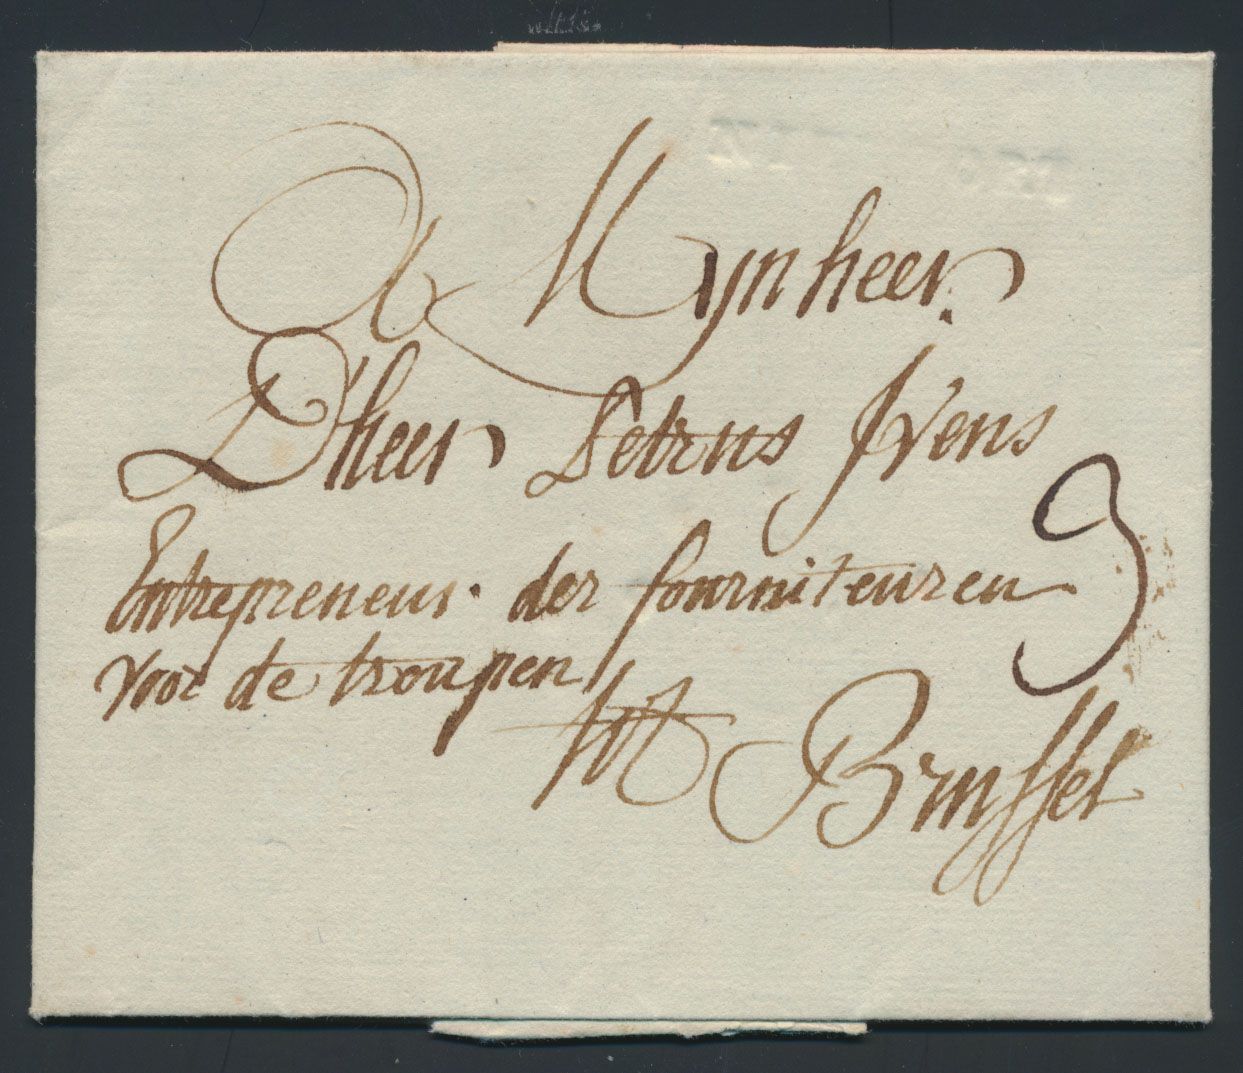 A Mynheer
D'heer Petrus Jvens
Entrepreneur der fourniteuren
voor de troupen
tot Brussel
3